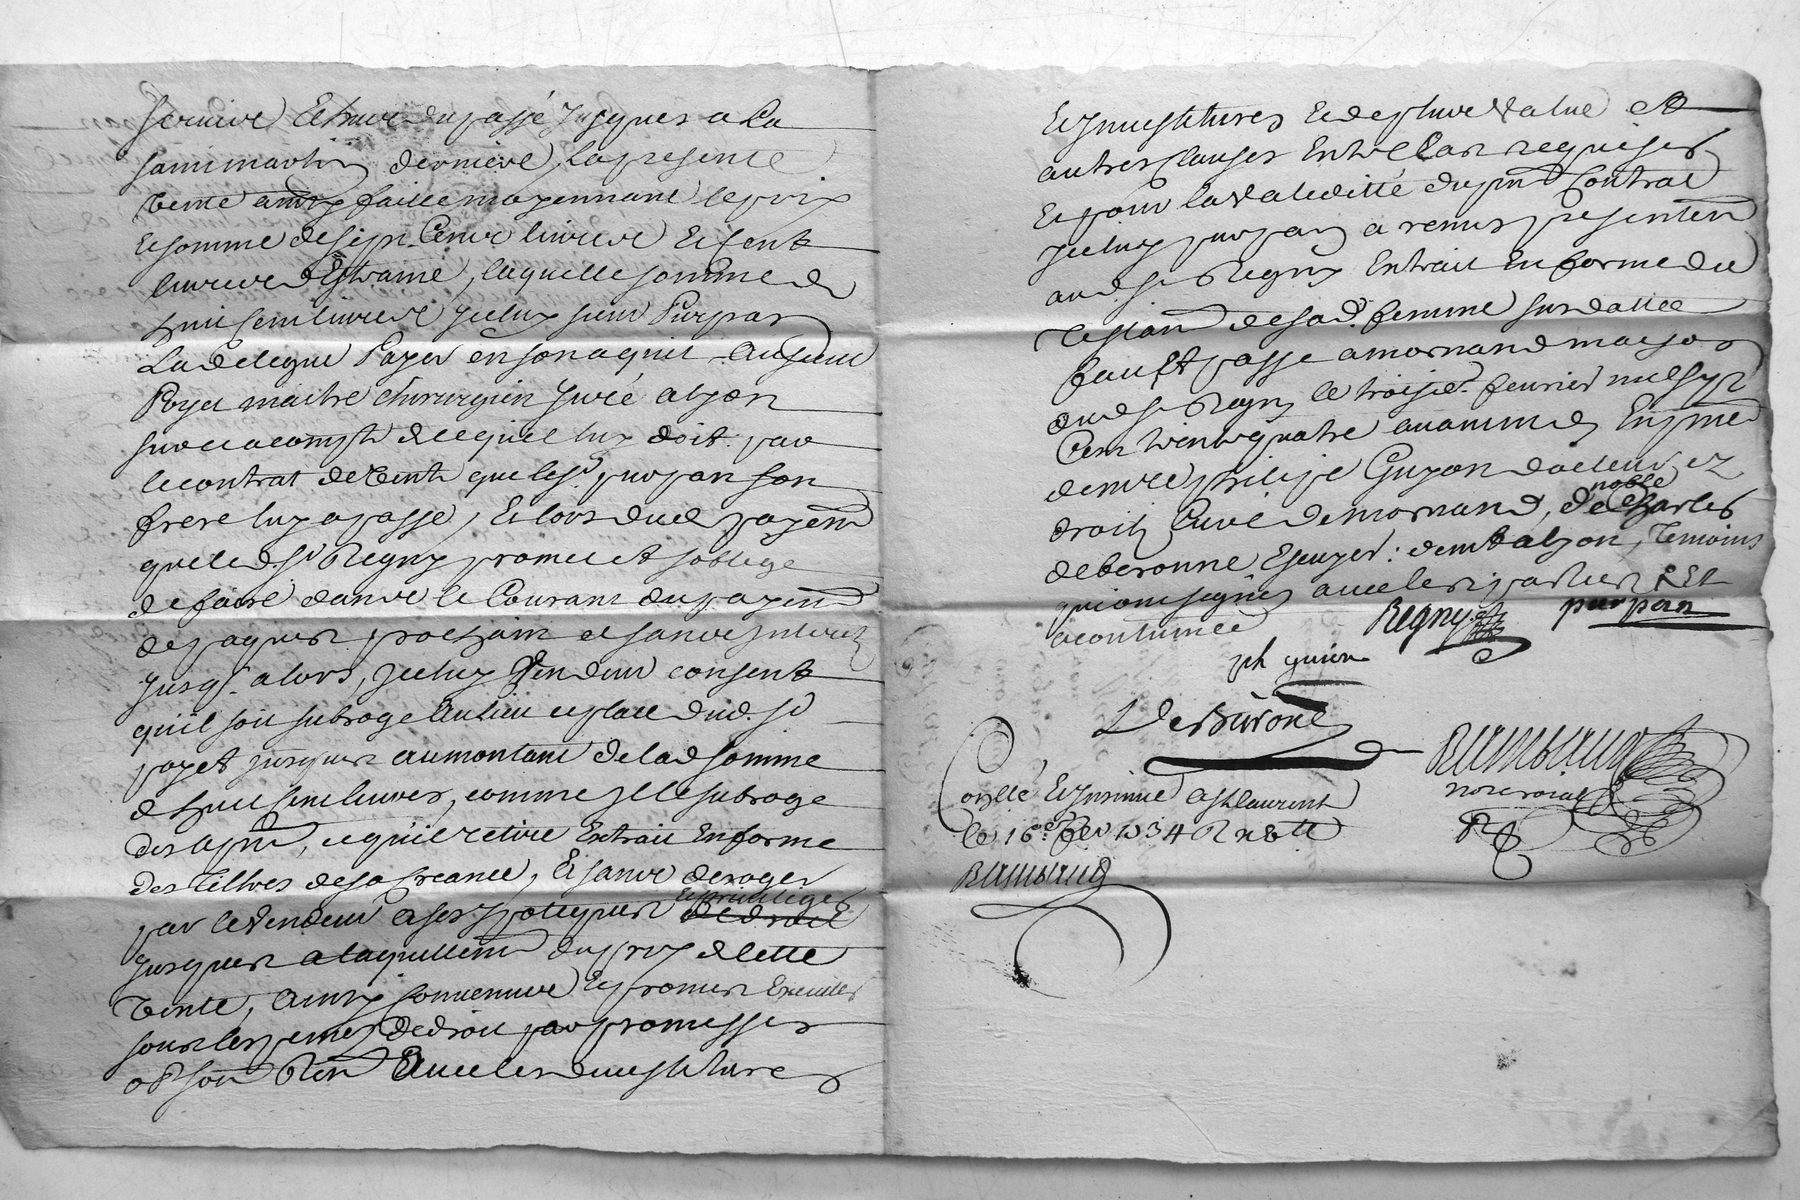 servive et du passé jusques a la
saint martin derniere, la presente
vente ainsy faitte moyennant le prix
et somme de sept Cent livres et cent
livres d'Estraine, laquelle somme de
huit cent livres iceluy sieur Purpan
La delegue Payer en son aquit au sieur
Poyet maitre chirurgien juré a lyon
sur et acompte de ce quil luy doit par
le contrat de vente que led. sr. purpan son
frere luy a passé, Et lors dud. payemt
que led. sr. Regny promet et s'oblige
de faire dans le Courant du payemt
de paques prochain et sans interet
jusq. alors, iceluy Vendeur consent
qu'il soit subroge au lieu et place dud. sr
poyet jusques au montant de lad. somme
de huit cent livres, comme il le subroge
des apnt, et qu'il retire Extrait En forme
des tiltres de sa Creance, Et sans deroger
par le Vendeur a ses ypoteques et privileges
jusques du prix de cette
vente, ainsy convenu et promis Executer
sous les peines de droit par promesses
obson Ren avec les devestitures
Et investitures et de plus value et
autres clauses En tel Cas requises
Et pour la validitté du pnt Contrat
iceluy purpan a remis presentemt
aud. sr. Regny Extrait En forme du
testamt de sad. femme sus datté
fait et passé a mornand maison
dud. sr. Regny le troise. fevrier mil sept
Cent trente quatre avant midy En pnce
de mre philipe Guyon docteur ez
droit Curé de mornand, de noble Charles
deberonne Escuyer: demt a lyon, temoins
qui ont signés avec les parties Et
acontumée
Regny purpan
ph guion
DeBurone
Rambaud
not. roial
Conllé Et insinué a St laurent
le 16e. fev 1734 R
Rambaud